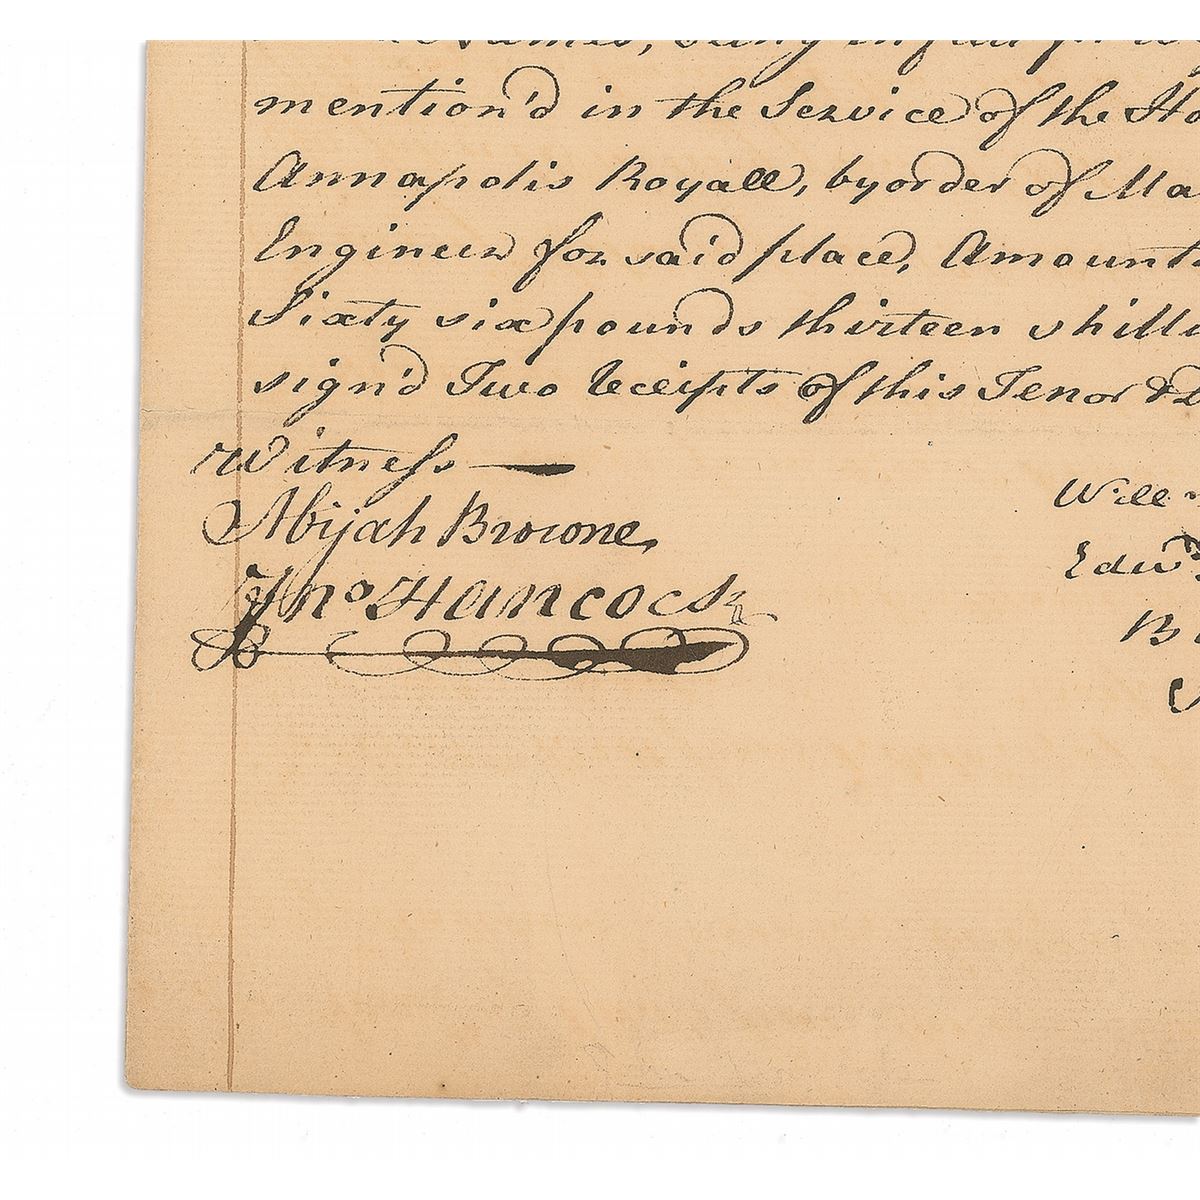 Names, being in full for
mention'd in the Service of the Ho
Annapolis Royall, by order of Ma
Engineer for said place, Amount
Sixty six pounds thirteen shill
sign'd Two Receipts of this Tenor & D
Witness
Abijah Browne,
Jno Hancock
Will
Edwd
B